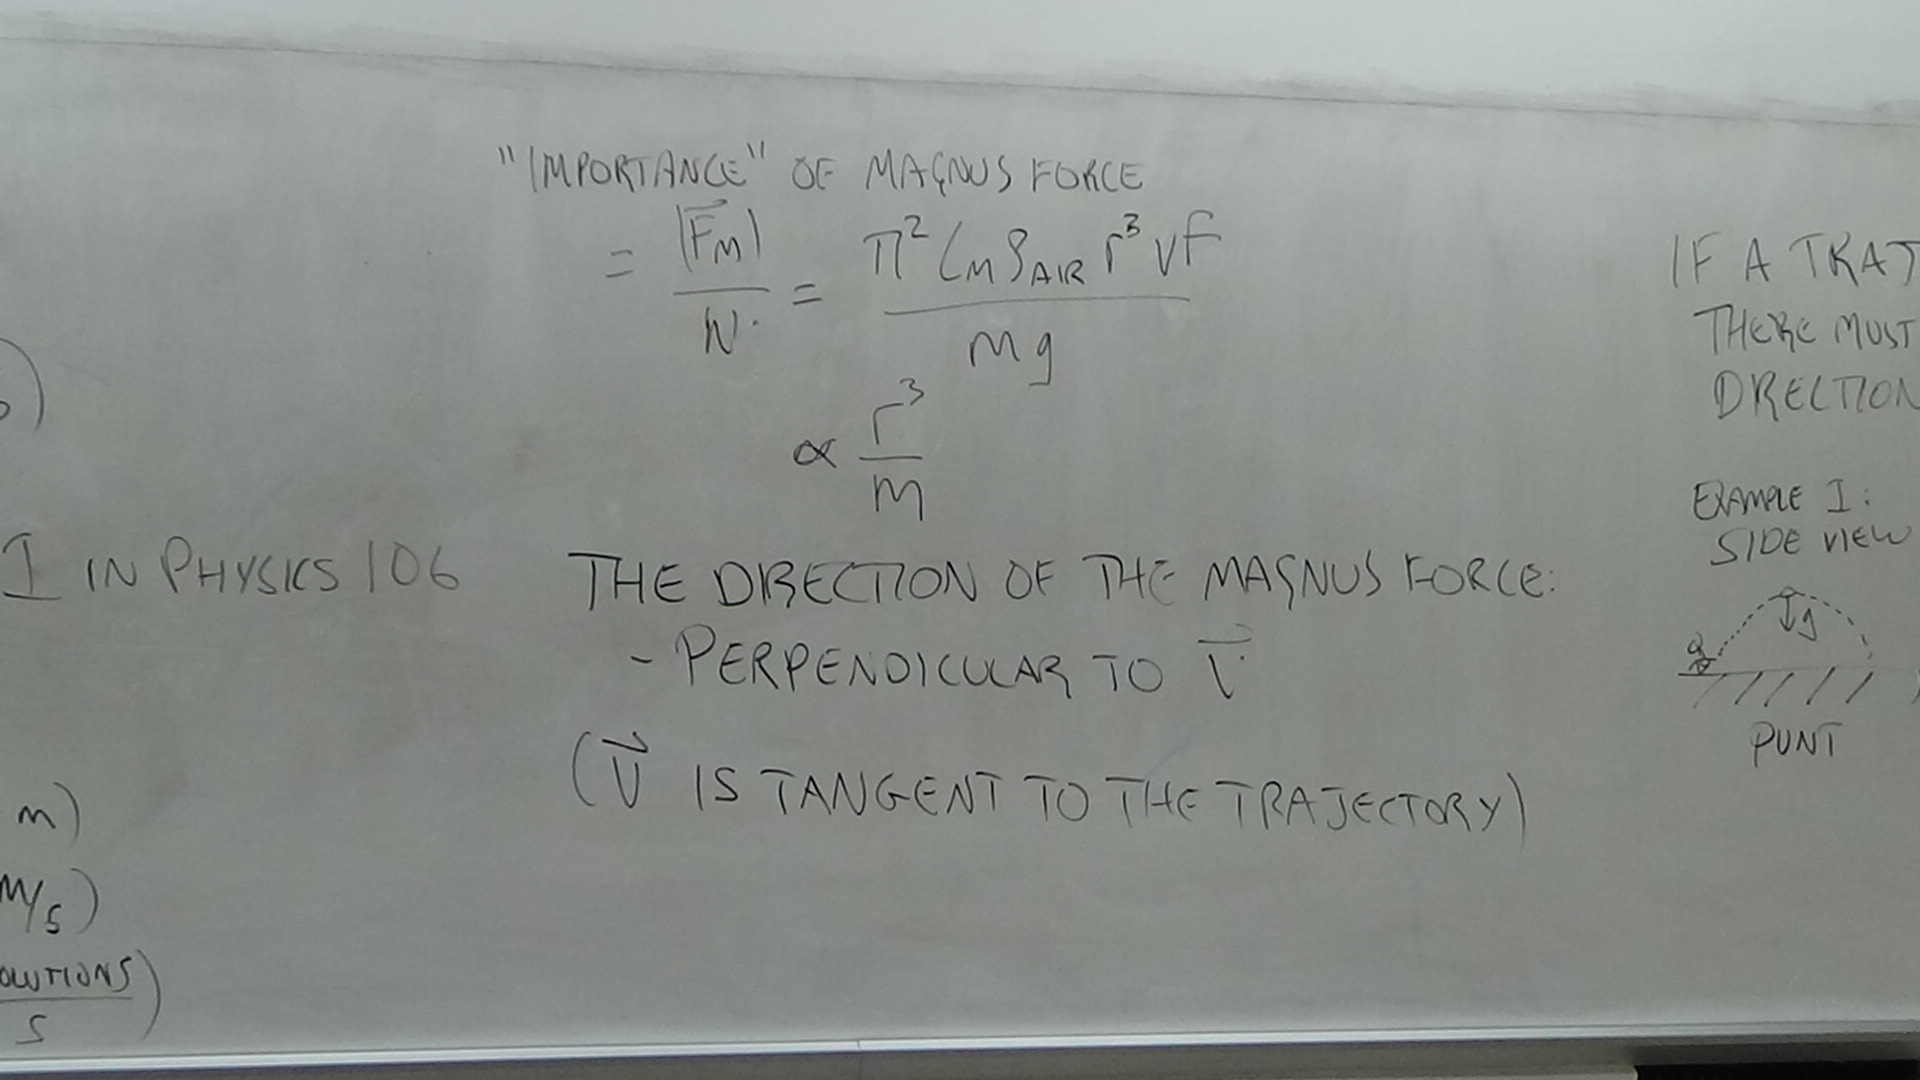 "IMPORTANCE" OF MAGNUS FORCE
= |F⃗M| / W = π² CM ρAIR r³ v f / mg
∝ r³ / m
I IN PHYSICS 106
THE DIRECTION OF THE MAGNUS FORCE:
- PERPENDICULAR TO V⃗
(V⃗ IS TANGENT TO THE TRAJECTORY)
m)
M/S)
OLUTIONS / S)
IF A TRAJ
THERE MUST
DIRECTION
EXAMPLE I:
SIDE VIEW
g
PUNT